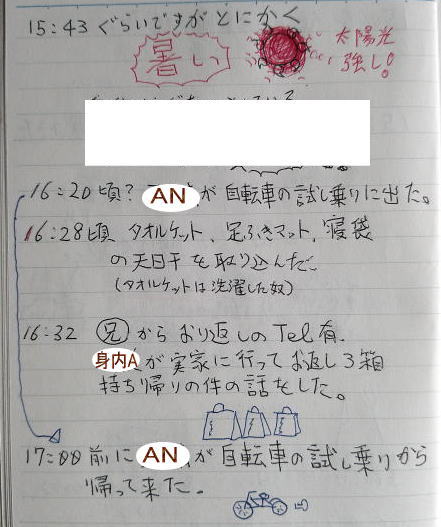 15:43 ぐらいですがとにかく
暑い
太陽光
強し!
16:20頃? ANが自転車の試し乗りに出た。
16:28頃 タオルケット、足ふきマット、寝袋
の天日干を取り込んだ。
(タオルケットは洗濯した奴)
16:32 兄からおり返しのTel有、
身内Aが実家に行ってお返し3箱
持ち帰りの件の話をした。
17:00前にANが自転車の試し乗りから
帰って来た。